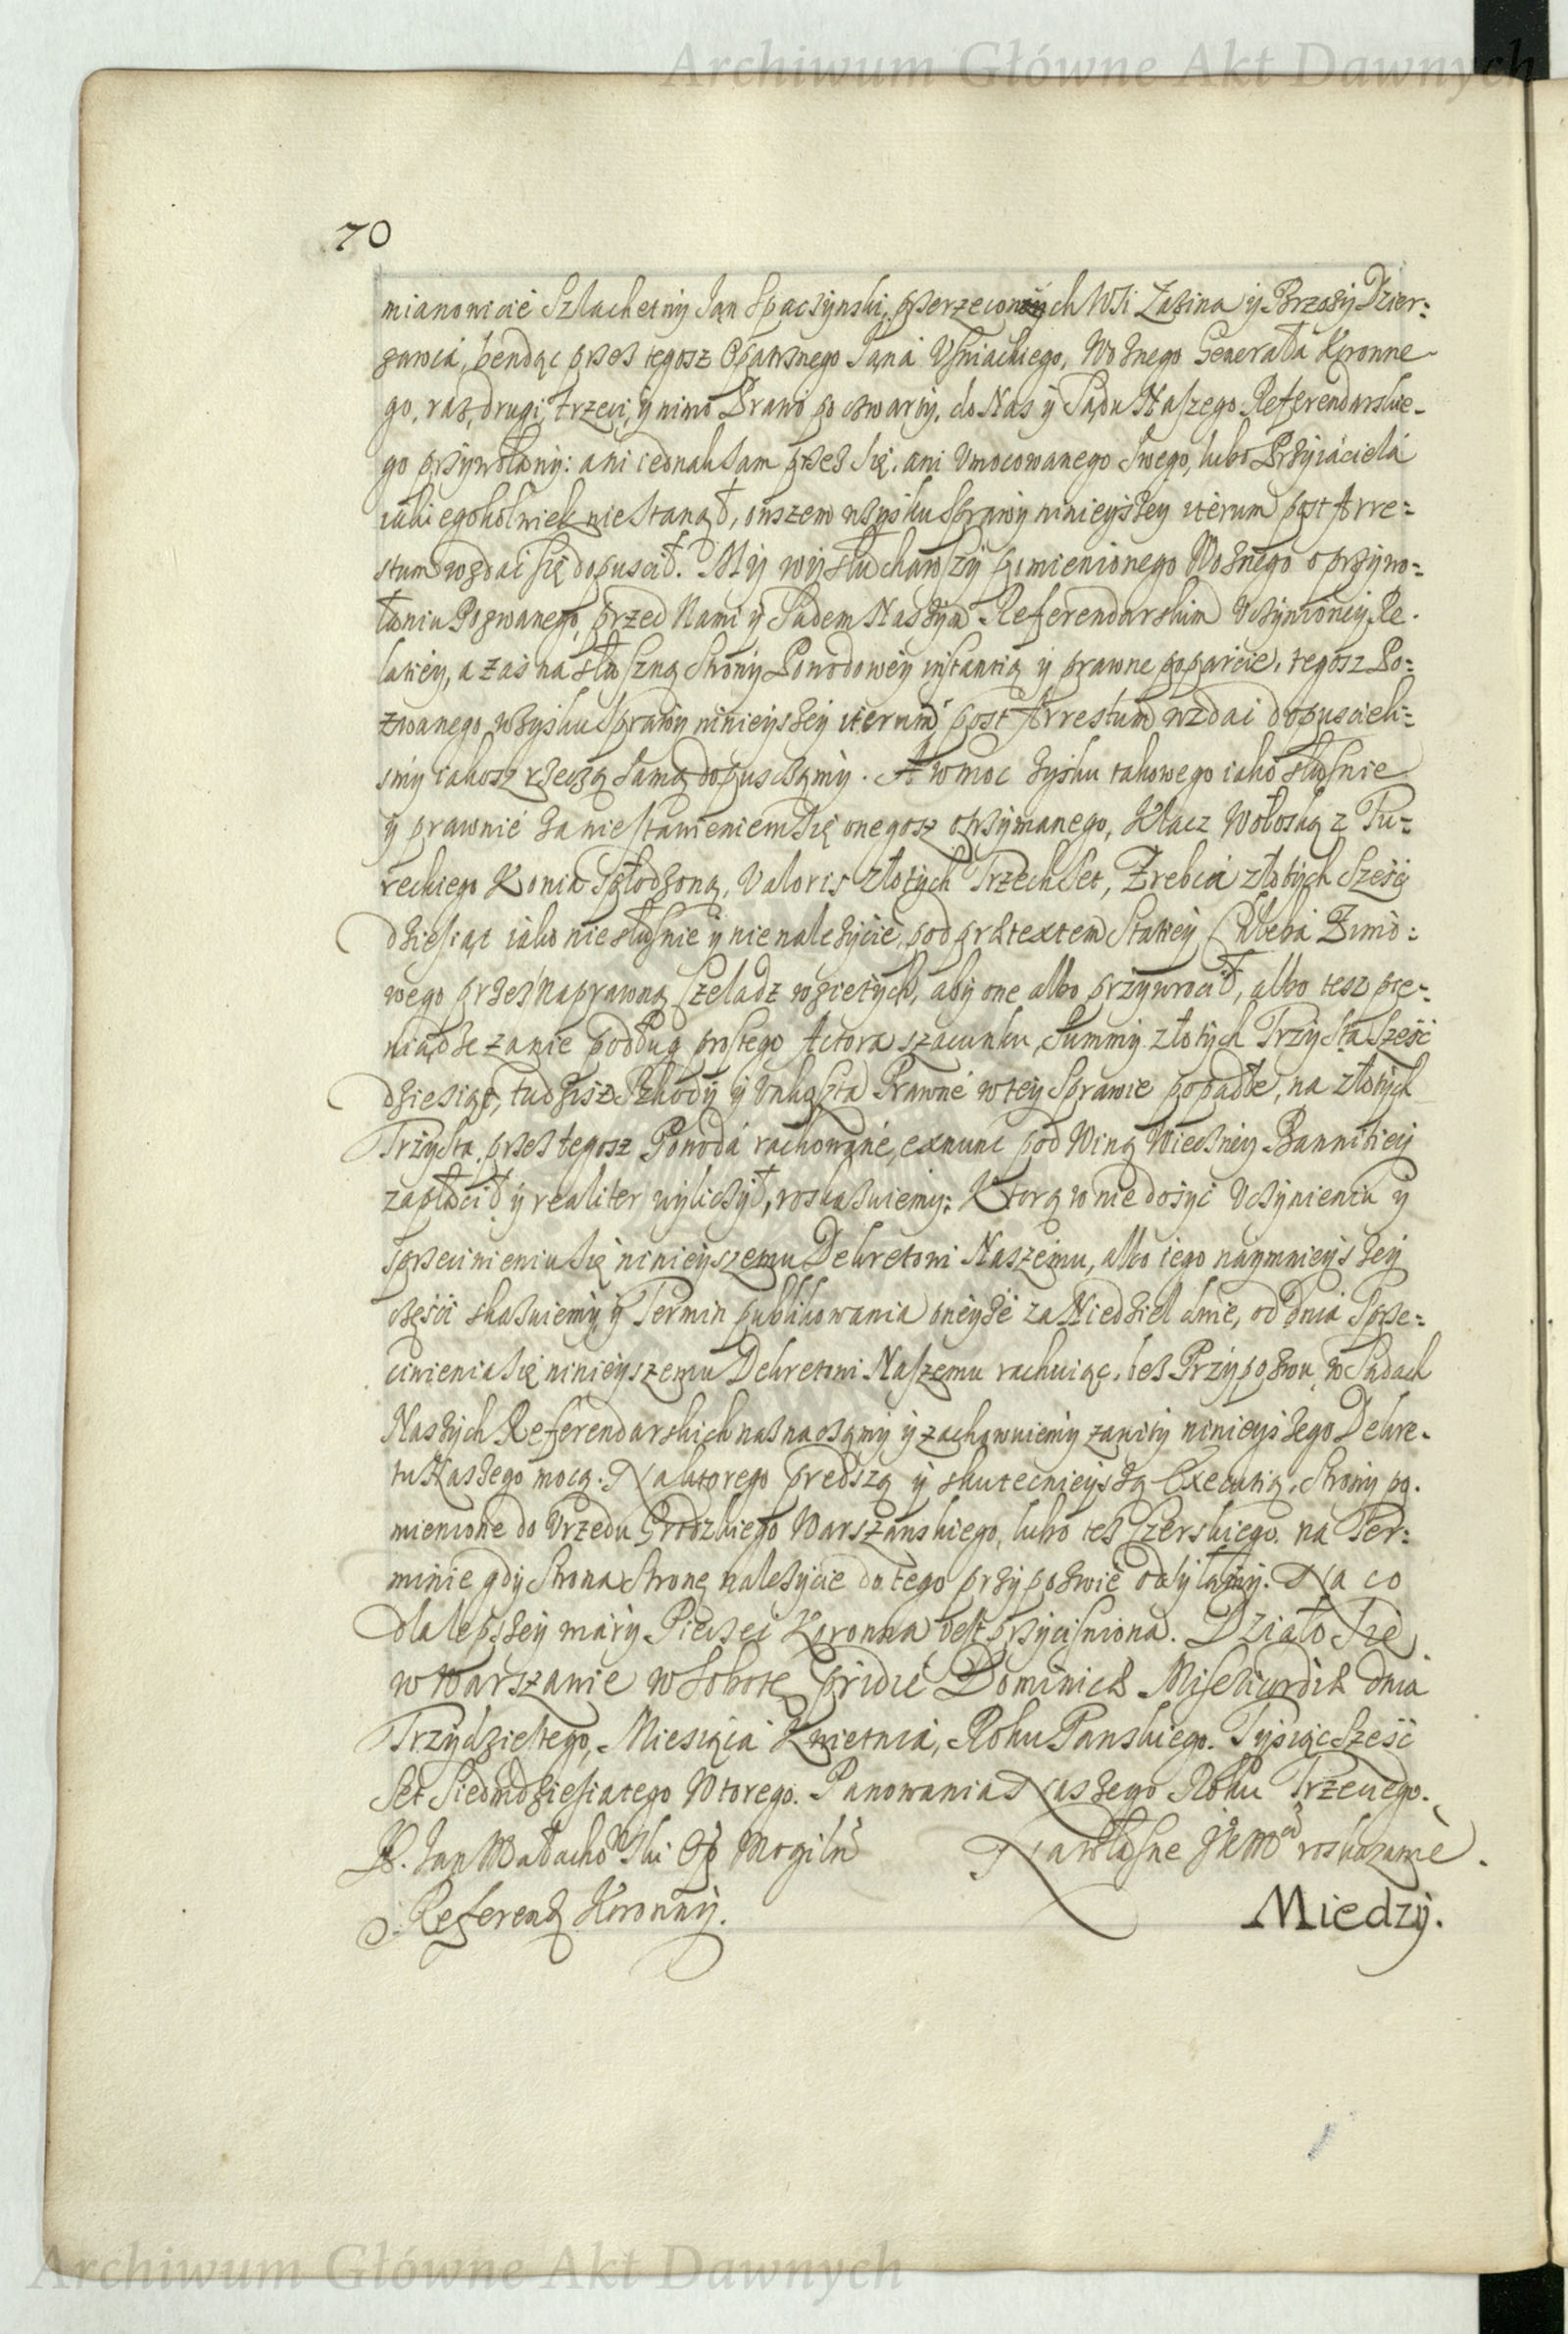 Archiwum Główne Akt Dawnych
70
mianowicie Szlachetny Jan Spaczynski, przerzeconych Wsi Zabina y Brzozy Dzier:
zawca, bendąc przes tegosz Opatrznego Jana Usniackiego, Woznego Generała Koronne-
go, raz, drugi, trzeci, y nimo Prawo po czwarty, do Nas y Sądu Naszego Referendarskie-
go przywołany: ani iednak sam przes się, ani Umocowanego Swego, lubo Przyiaciela
iakiegokolwiek nie stanął, owszem wzysku Sprawy ninieyszey iterum post Arre:
stum wzdac się dopuscił. My wysłuchawszy pomienionego Woznego o przywo:
łaniu Pozwanego, przed Nami y Sądem Naszym Referendarskim Uczynioney Re-
latiey, a zas na słuszną Strony Powodowey instantią y prawne poparcie, tegosz Po:
zwanego wzysku Sprawy ninieyszey iterum post Arrestum wzdac dopuscieli:
smy iakosz rzeczą samą dopusczamy. A w moc zysku takowego iako słusznie
y prawnie za niestawieniem się onegosz otrzymanego, Klacz Wołoską z Tu:
reckiego Konia Spłodzoną, Valoris złotych Trzech Set, Zrebca złotych Sześć
dziesiąt iako niesłusnie y nienalezycie, pod prætextem Statiey Chleba Zimo:
wego przes Naprawną Czeladz wzietych, aby one albo przywrocił, albo tesz pie:
niądze za nie podług prostego Actora szacunku, Summy złotych Trzysta Sześć
dziesiąt, tudziesz Szkody y Unkoszta Prawne w tey Sprawie popadłe, na złotych
Trzysta przes tegosz Powoda rachowane, exnunc pod Winą Wieczney Bannitiey
zapłacił y realiter wyliczył, roskazuiemy: Ktorą w nie dosyc Uczynieniu y
sprzeciwieniu się ninieyszemu Dekretowi Naszemu, albo iego naymnieyszey
częsci skazuiemy y Termin publikowania oneyże za Niedziel dwie, od dnia Sprze:
ciwienia się ninieyszemu Dekretowi Naszemu rachuiąc, bes Przypozwu, w Sądach
Naszych Referendarskich naznaczamy y zachowuiemy zawity ninieyszego Dekre-
tu Naszego mocą. Na ktorego predszą y skutecznieyszą Executią, Strony po-
mienione do Urzedu Grodzkiego Warszawskiego, lubo tes Czerskiego. na Ter:
minie gdy Strona Stronę nalezycie do tego przypozwie odsyłamy. Na co
dla lepszey wiary Pieczęc Koronna iest przycisniona. Działo Się
w Warszawie w Sobotę pridie Dominicæ Misericordiæ dnia
Trzydziestego, Miesiąca Kwietnia, Roku Panskiego. Tysiąc Sześć
Set Siedmdziesiatego Wtorego. Panowania Naszego Roku Trzeciego.
X. Jan Małachowski Op Mogilń Na własne JKMći roskazanie.
Referend Koronny.
Miedzy.
Archiwum Główne Akt Dawnych